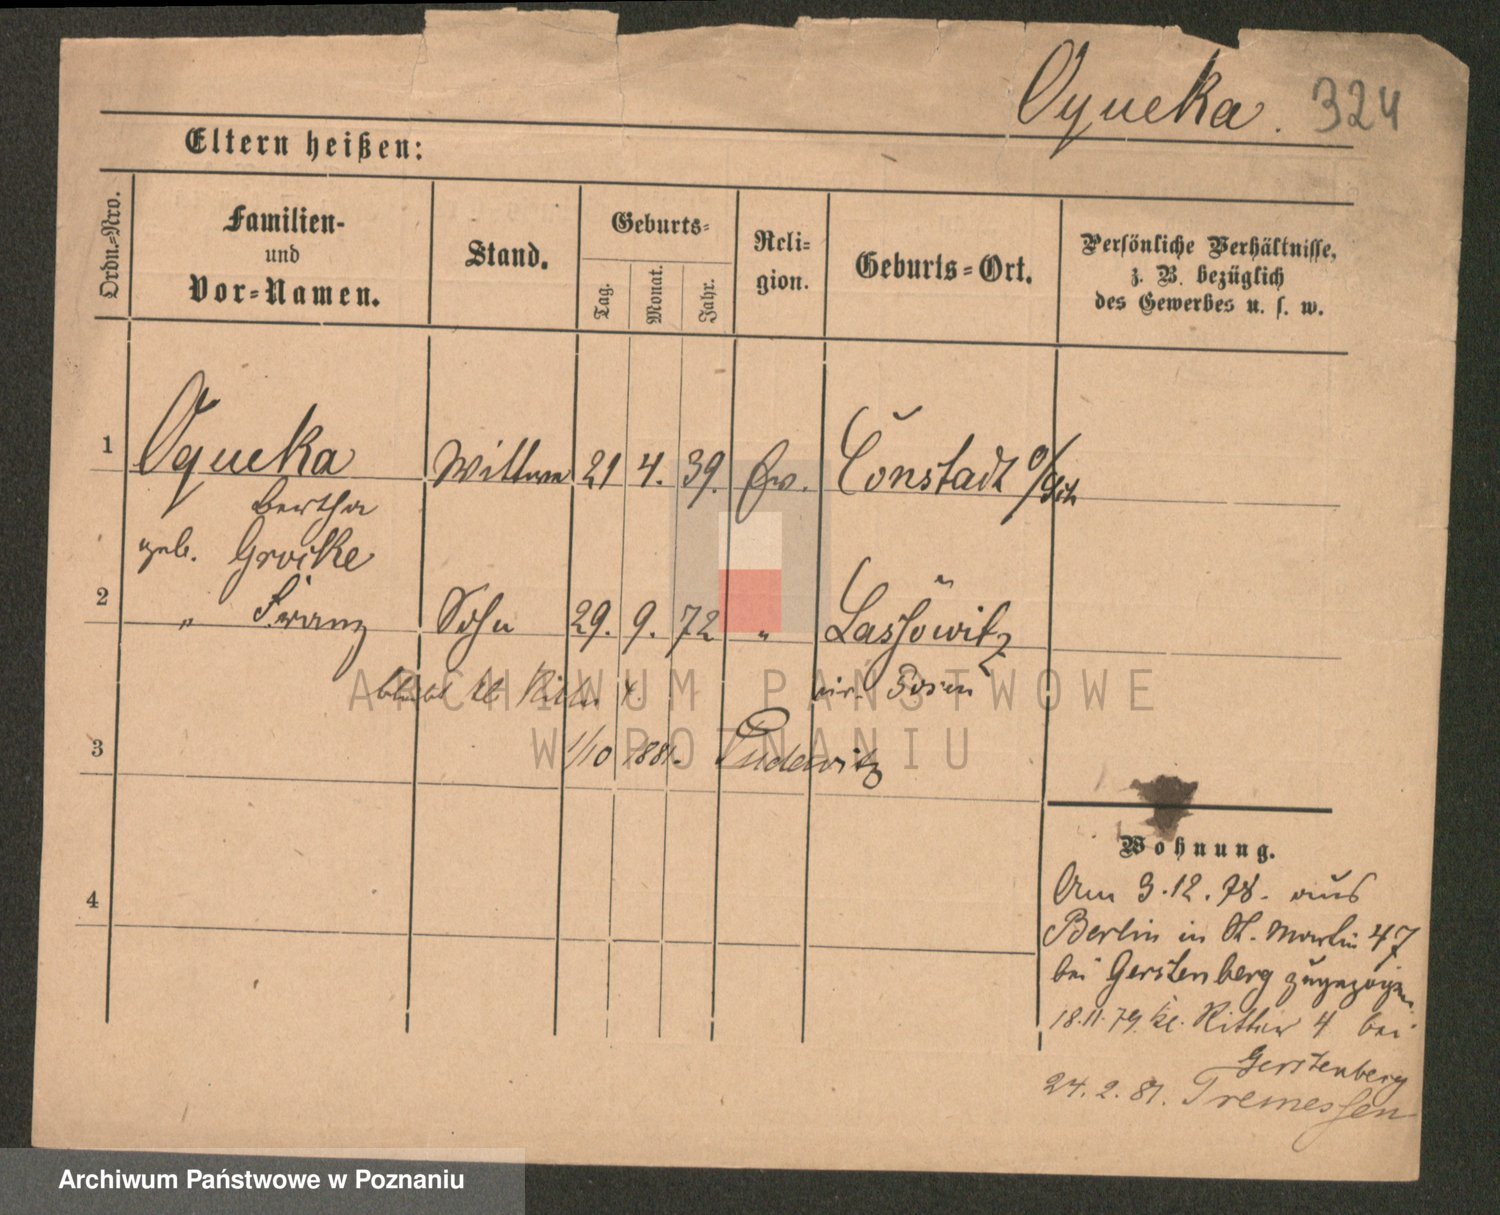 Oqueka. 324
Eltern heißen:
Ordn.-Nro.
Familien-
und
Vor-Namen.
Stand.
Geburts-
Tag.
Monat.
Jahr.
Reli-
gion.
Geburts-Ort.
Persönliche Verhältnisse,
z. B. bezüglich
des Gewerbes u. s. w.
1 Oqueka Wittwe 21 4. 39. Ev. Constadt O/Sch
Bertha
geb. Groike
2 " Franz Sohn 29. 9. 72 " Lassowitz
bleibt kl. Ritter 4. Kr. Posen
3 1/10 1881. Pudewitz
4
Wohnung.
Am 3.12.78. aus
Berlin in St. Martin 47
bei Gerstenberg zugezogen
18.11.79. kl. Ritter 4 bei
Gerstenberg
24.2.81. Tremessen
ARCHIWUM PAŃSTWOWE
W POZNANIU
Archiwum Państwowe w Poznaniu